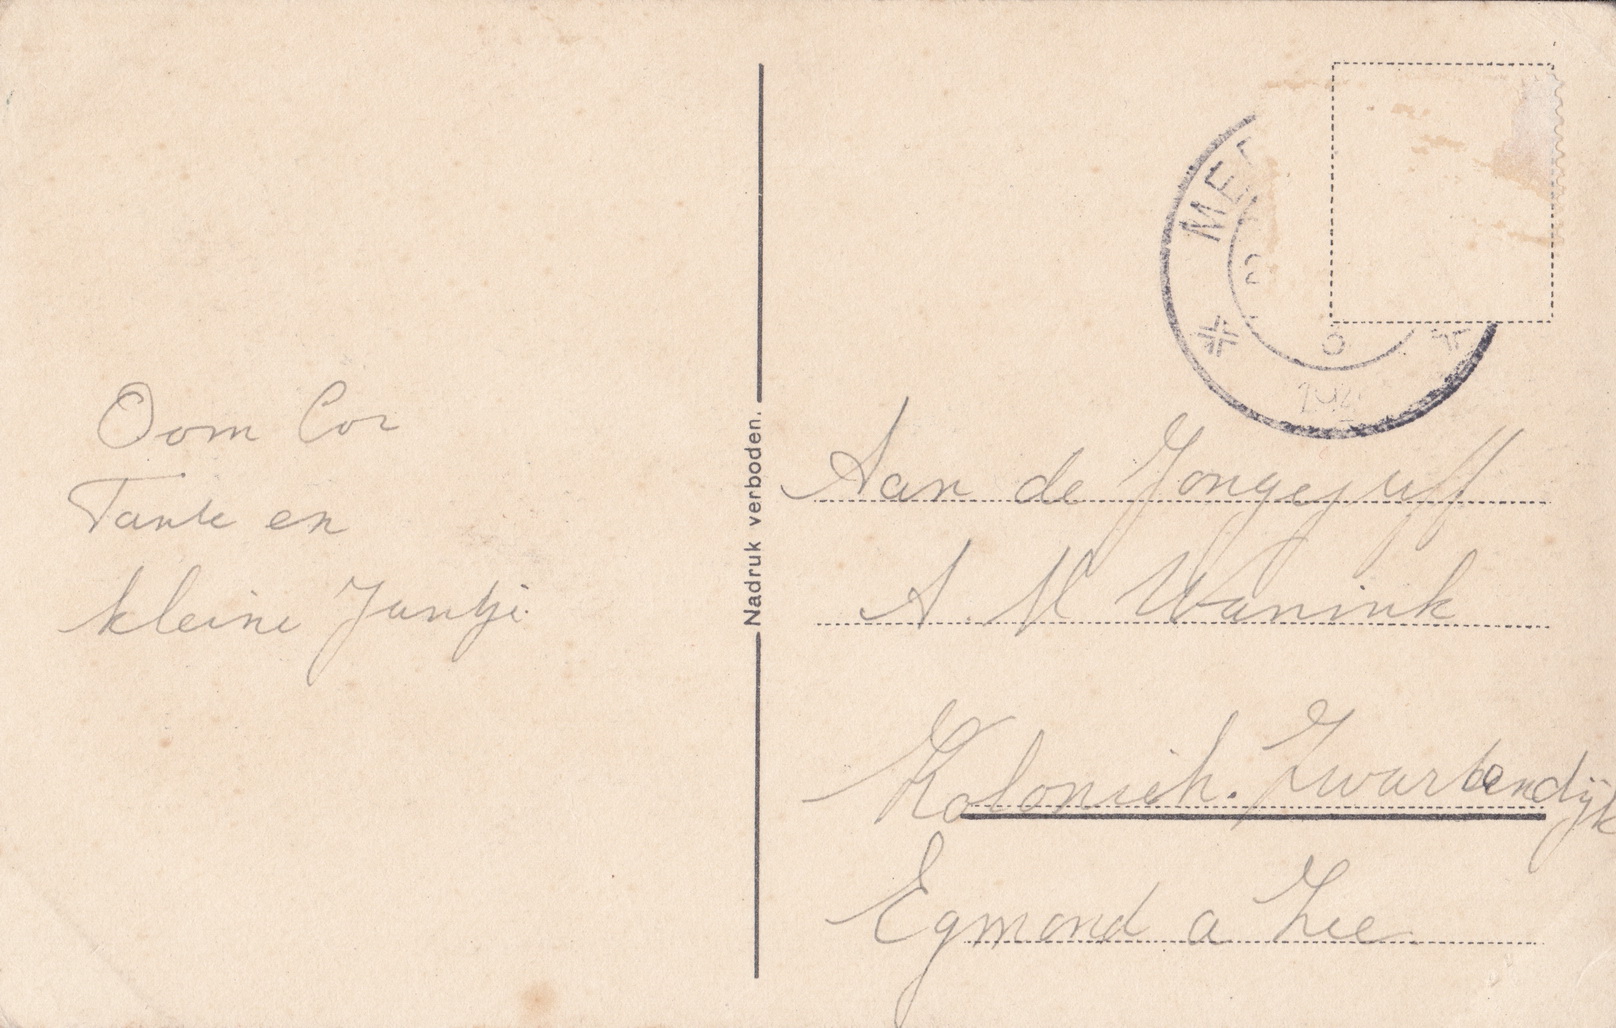 Oom Cor
Tante en
kleine Jantje.
Nadruk verboden.
Aan de Jongejuff
A. M Wanink
Kolonieh. Zwartendijk
Egmond a Zee.